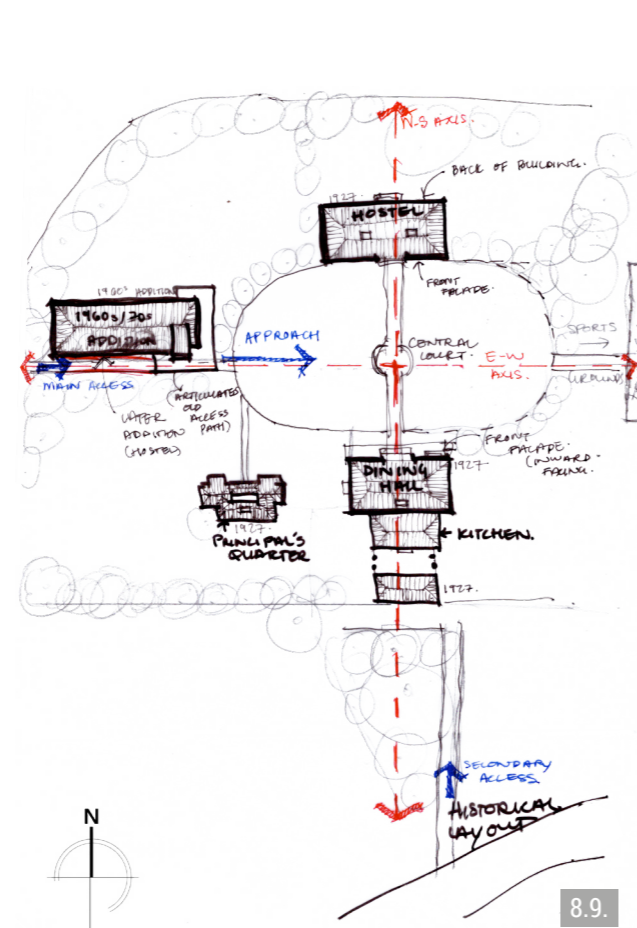 N-S AXIS.
BACK OF BUILDING.
1927.
HOSTEL
FRONT
FACADE.
1960s ADDITION
1960s/70s
ADDITION
APPROACH
CENTRAL
COURT.
E-W
AXIS.
SPORTS
GROUND
MAIN ACCESS
(ARTICULATED
OLD
ACCESS
PATH)
LATER
ADDITION
(HOSTEL)
FRONT
FACADE.
(INWARD
FACING.
1927.
DINING
HALL
1927.
PRINCIPAL'S
QUARTER
KITCHEN.
1927.
SECONDARY
ACCESS.
HISTORICAL
LAYOUT
N
8.9.